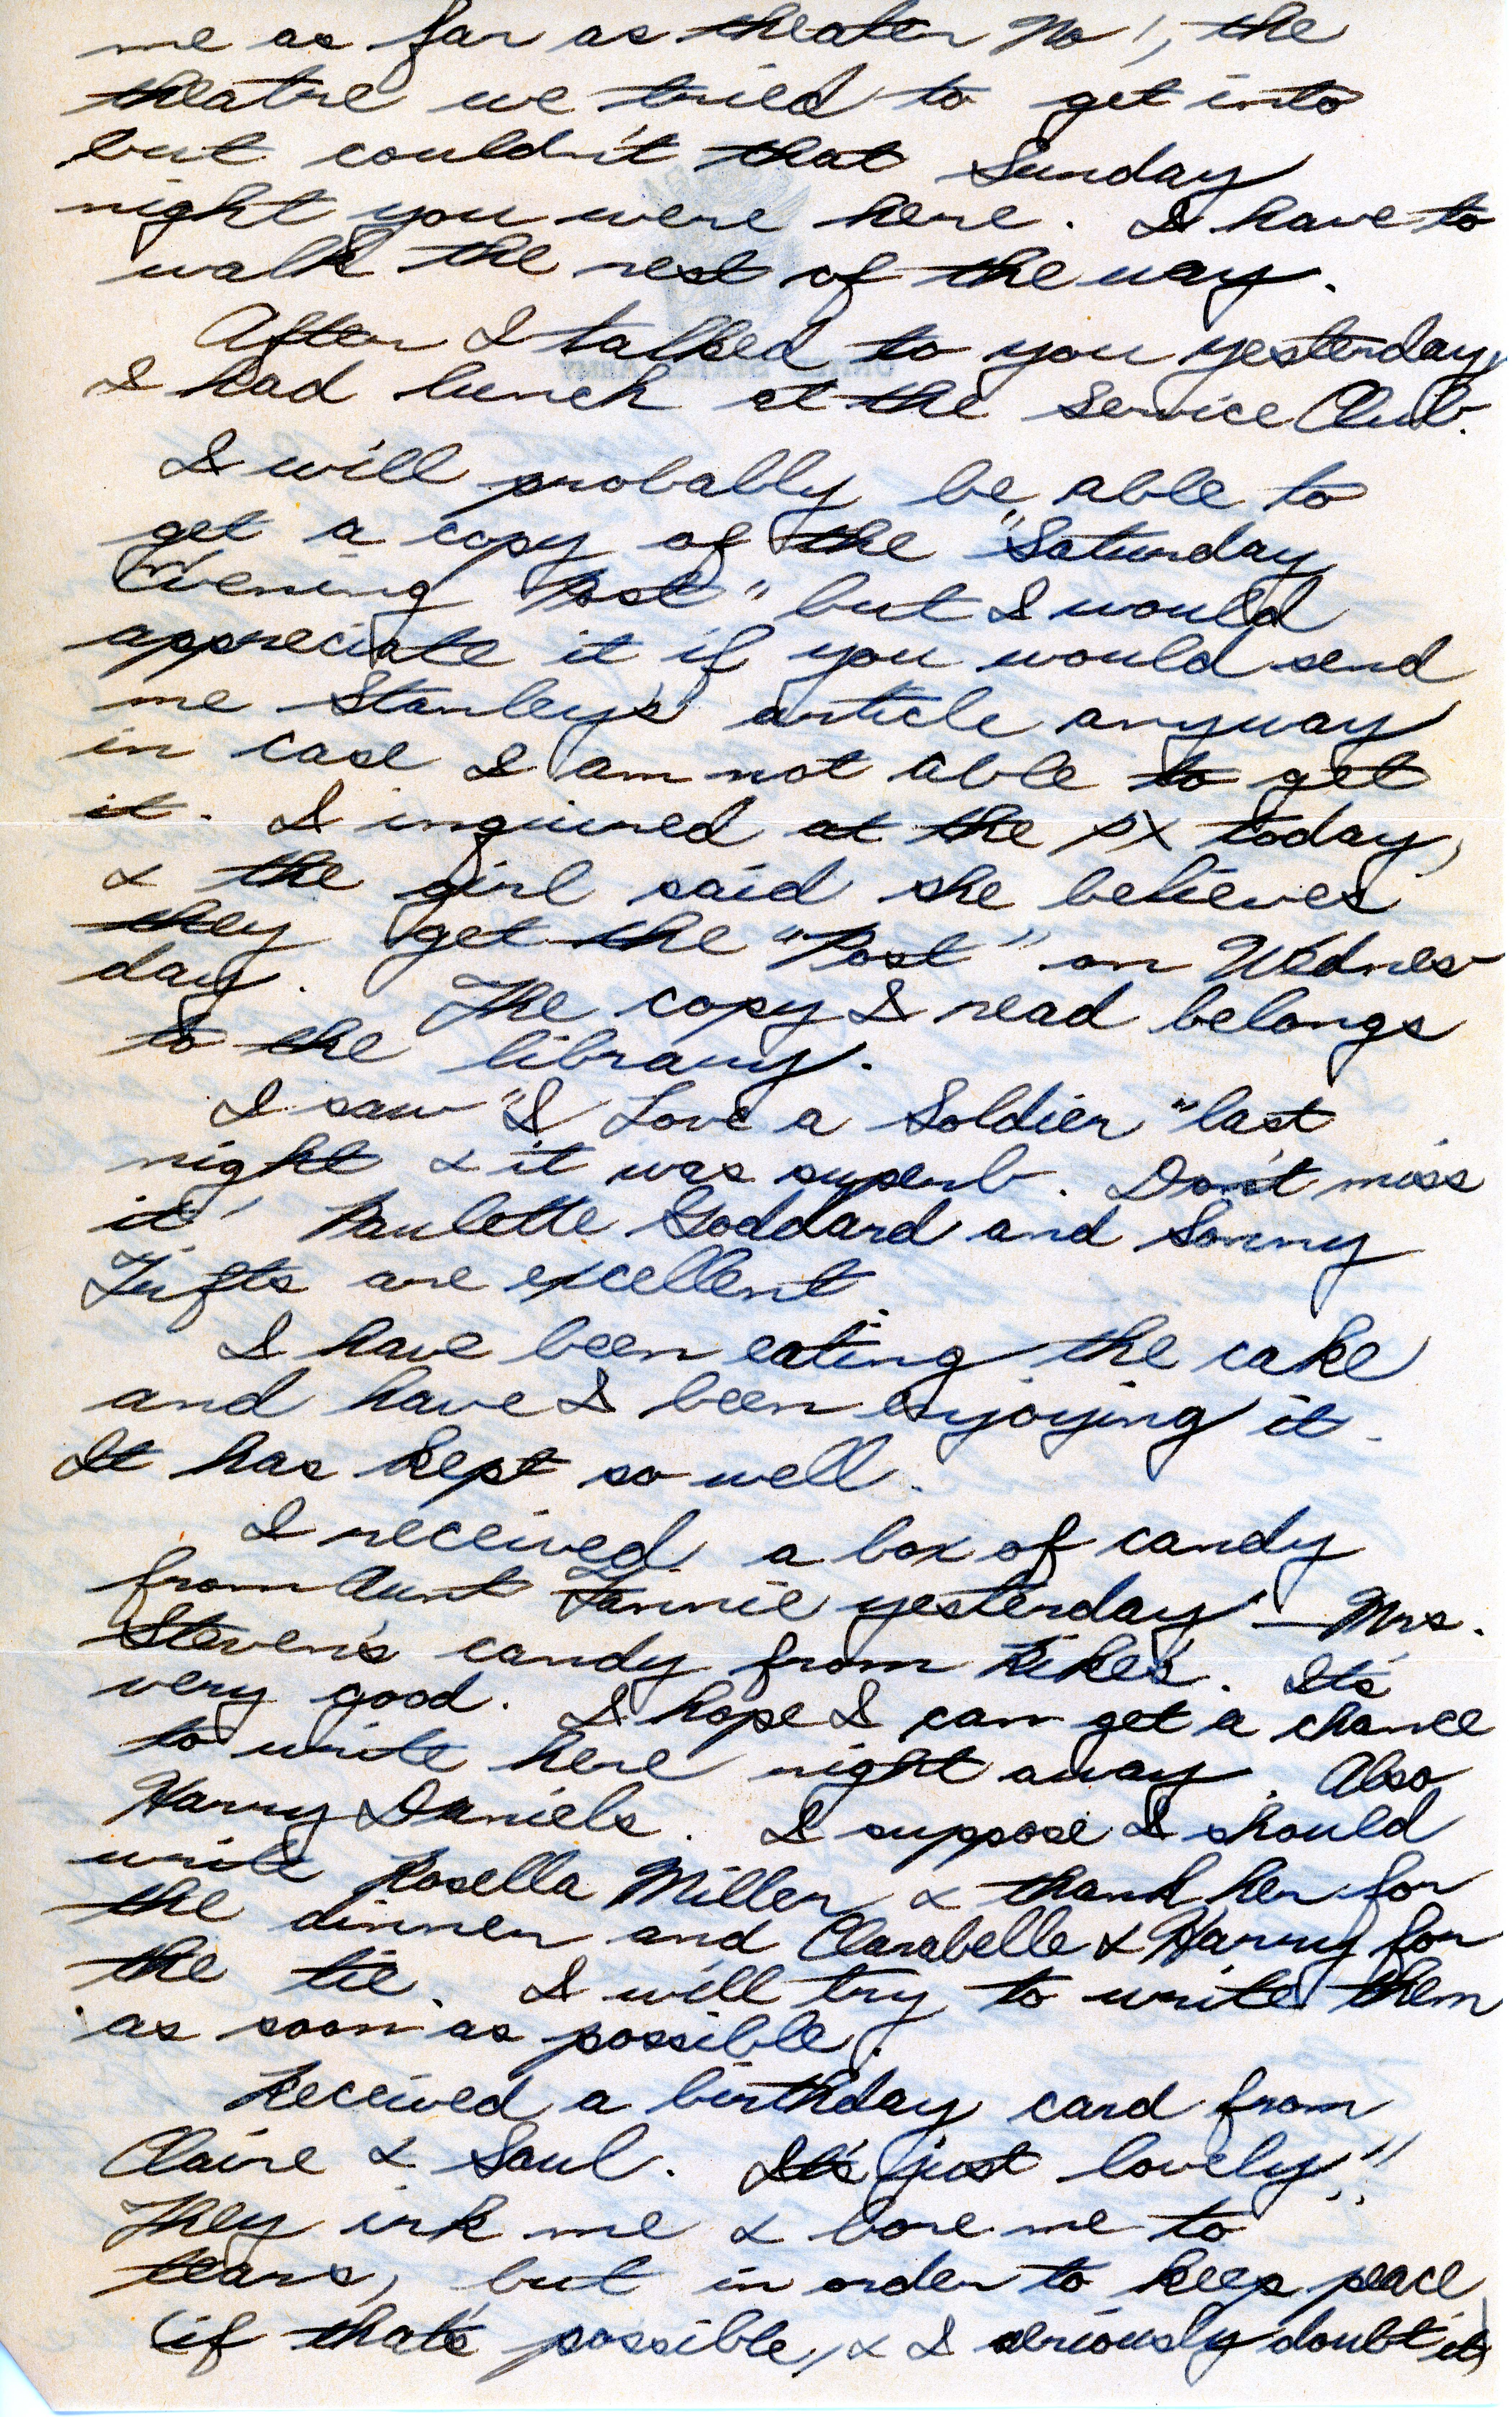 me as far as theater No 1, the
theatre we tried to get into
but couldn't that Sunday
night you were here. I have to
walk the rest of the way.
After I talked to you yesterday,
I had lunch at the Service Club.
I will probably be able to
get a copy of the "Saturday
Evening Post" but I would
appreciate it if you would send
me Stanley's article anyway
in case I am not able to get
it. I inquired at the PX today,
& the girl said she believes
they get the "Post" on Wednes-
day. The copy I read belongs
to the library.
I saw "I Love a Soldier" last
night & it was superb. Don't miss
it! Paulette Goddard and Sonny
Tufts are excellent.
I have been eating the cake
and have I been enjoying it.
It has kept so well.
I received a box of candy
from Aunt Fannie yesterday — Mrs.
Steven's candy from Rike's. It's
very good. I hope I can get a chance
to write here right away. Also
Harry Daniels. I suppose I should
write Rosella Miller & thank her for
the dinner and Clarabelle & Harry for
the tie. I will try to write them
as soon as possible.
Received a birthday card from
Claire & Saul. It's just lovely!!
They irk me & bore me to
tears, but in order to keep peace
(if that's possible, & I seriously doubt it)
UNITED STATES ARMY